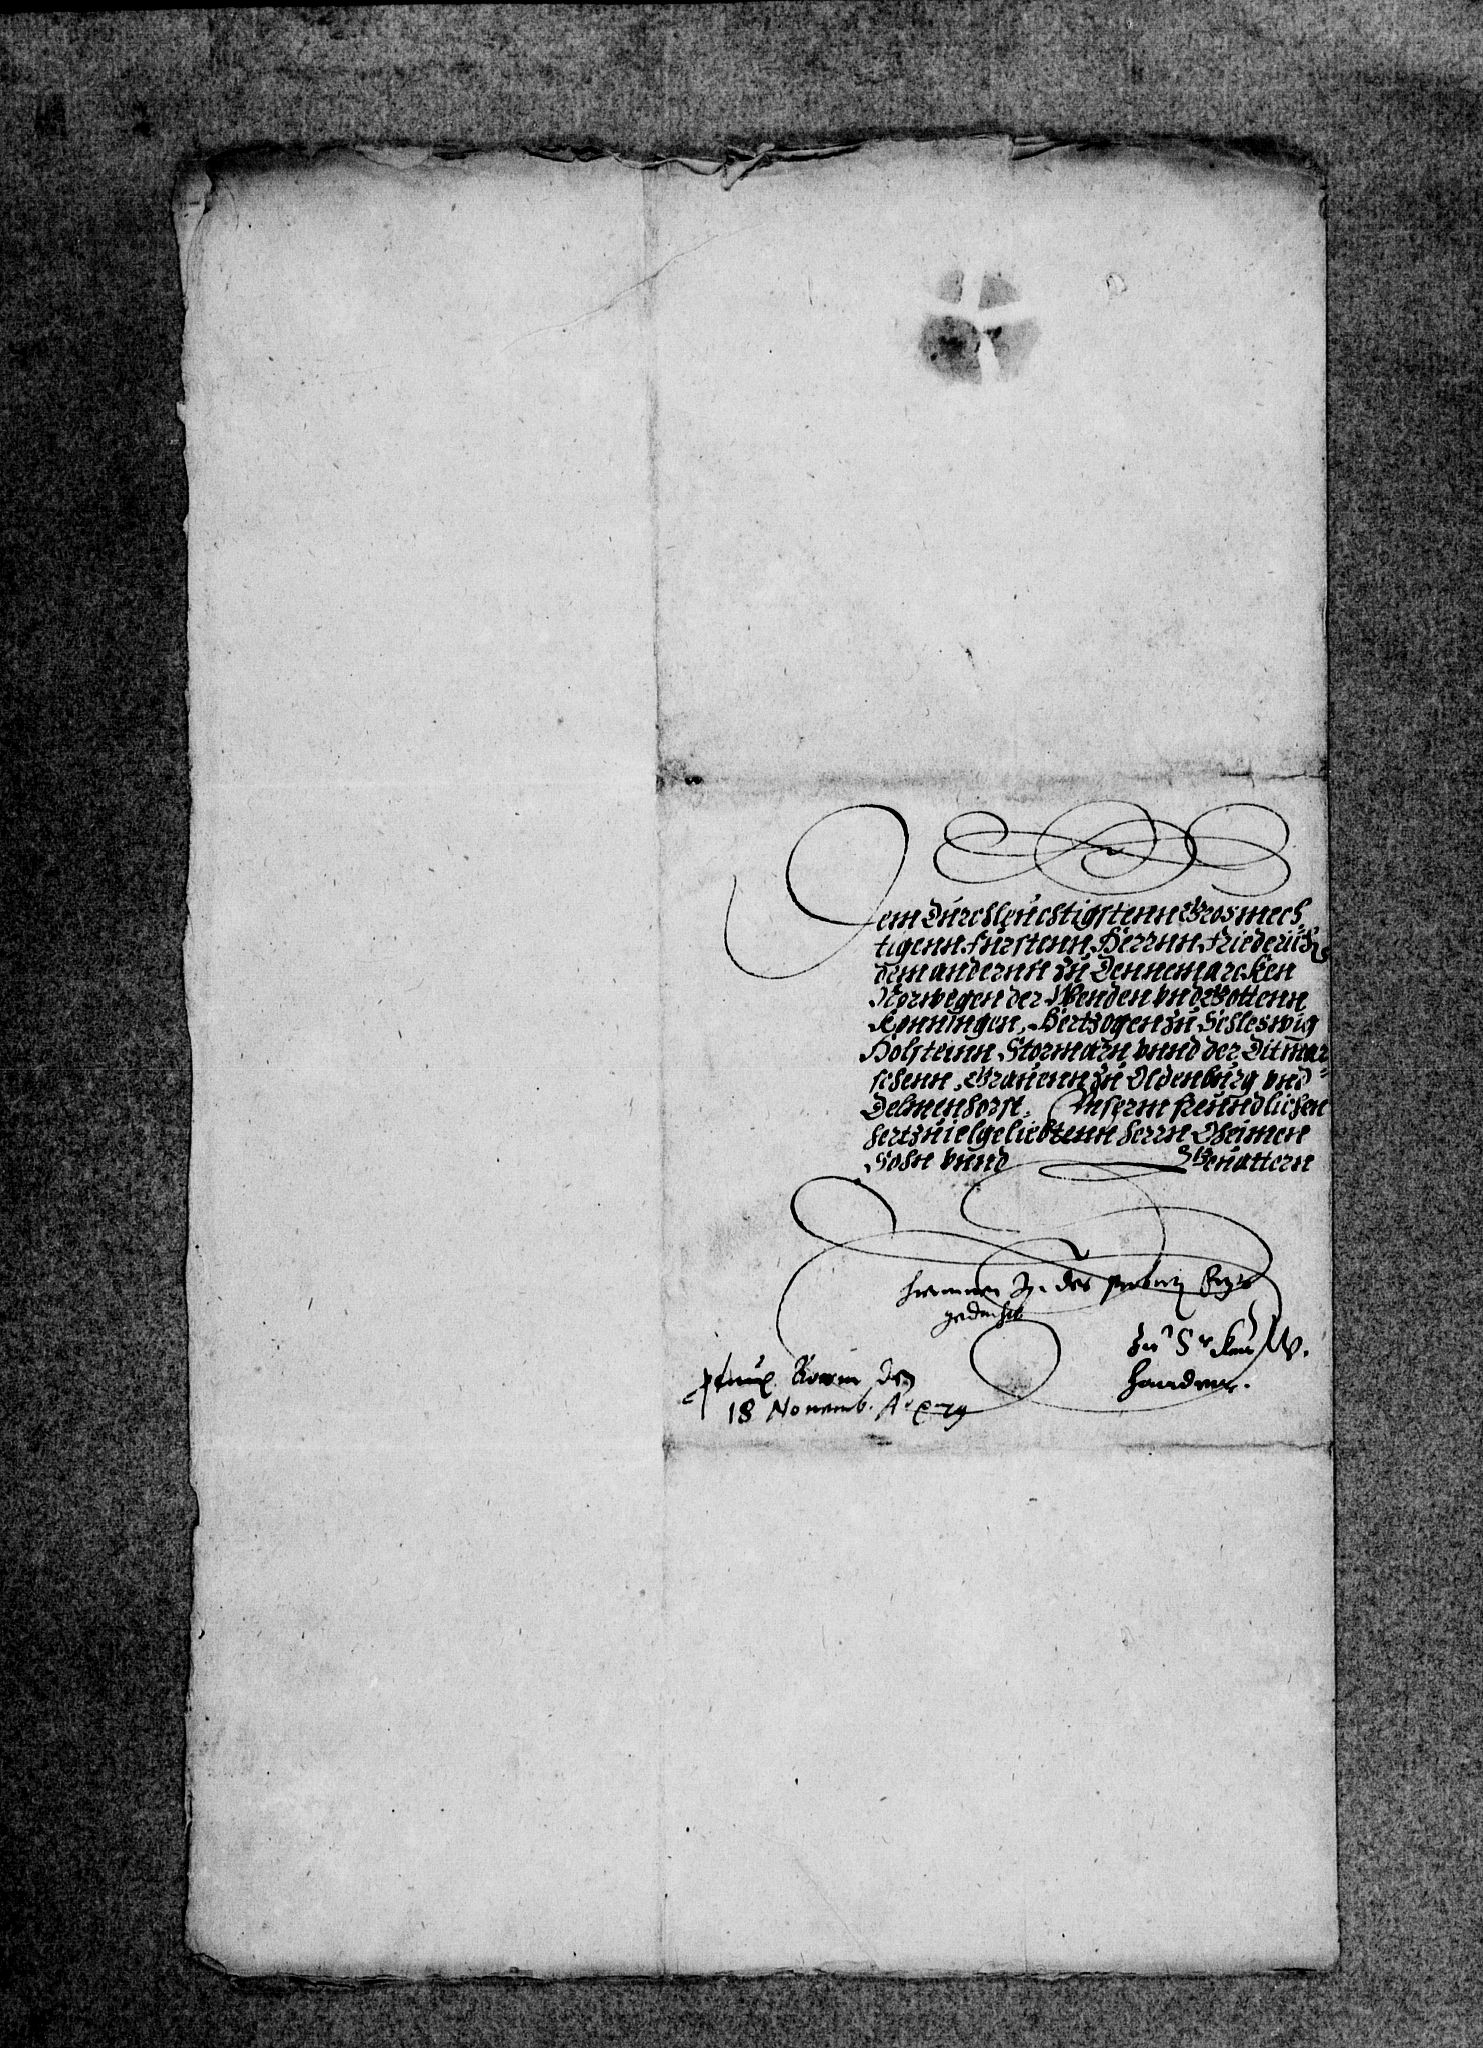 Dem Durchleuchtigstenn Grosmech,
tigenn Furstenn, Herrnn Friederich
dem andernn zu Dennemarcken
Norwegen der Wenden vnd Gottenn
Konningen, Hertzogen zu Schleswig
Holsteinn, Stormarn vnnd der Ditmar
schenn, Grauenn zu Oldenburg vnd
Delmenhorst, Vnserm freundlichen
hertzuielgeliebtenn herrn Oheimen
Sohn vnnd Geuattern
In des
gedacht
Zu Sr kön W.
handen.
den
18 Nouemb. Ao 79